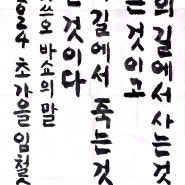 의 길에서 사는 것
는 것이고
길에서 죽는 것
것이다
쓰오 바쇼의 말
24 초가을 임철